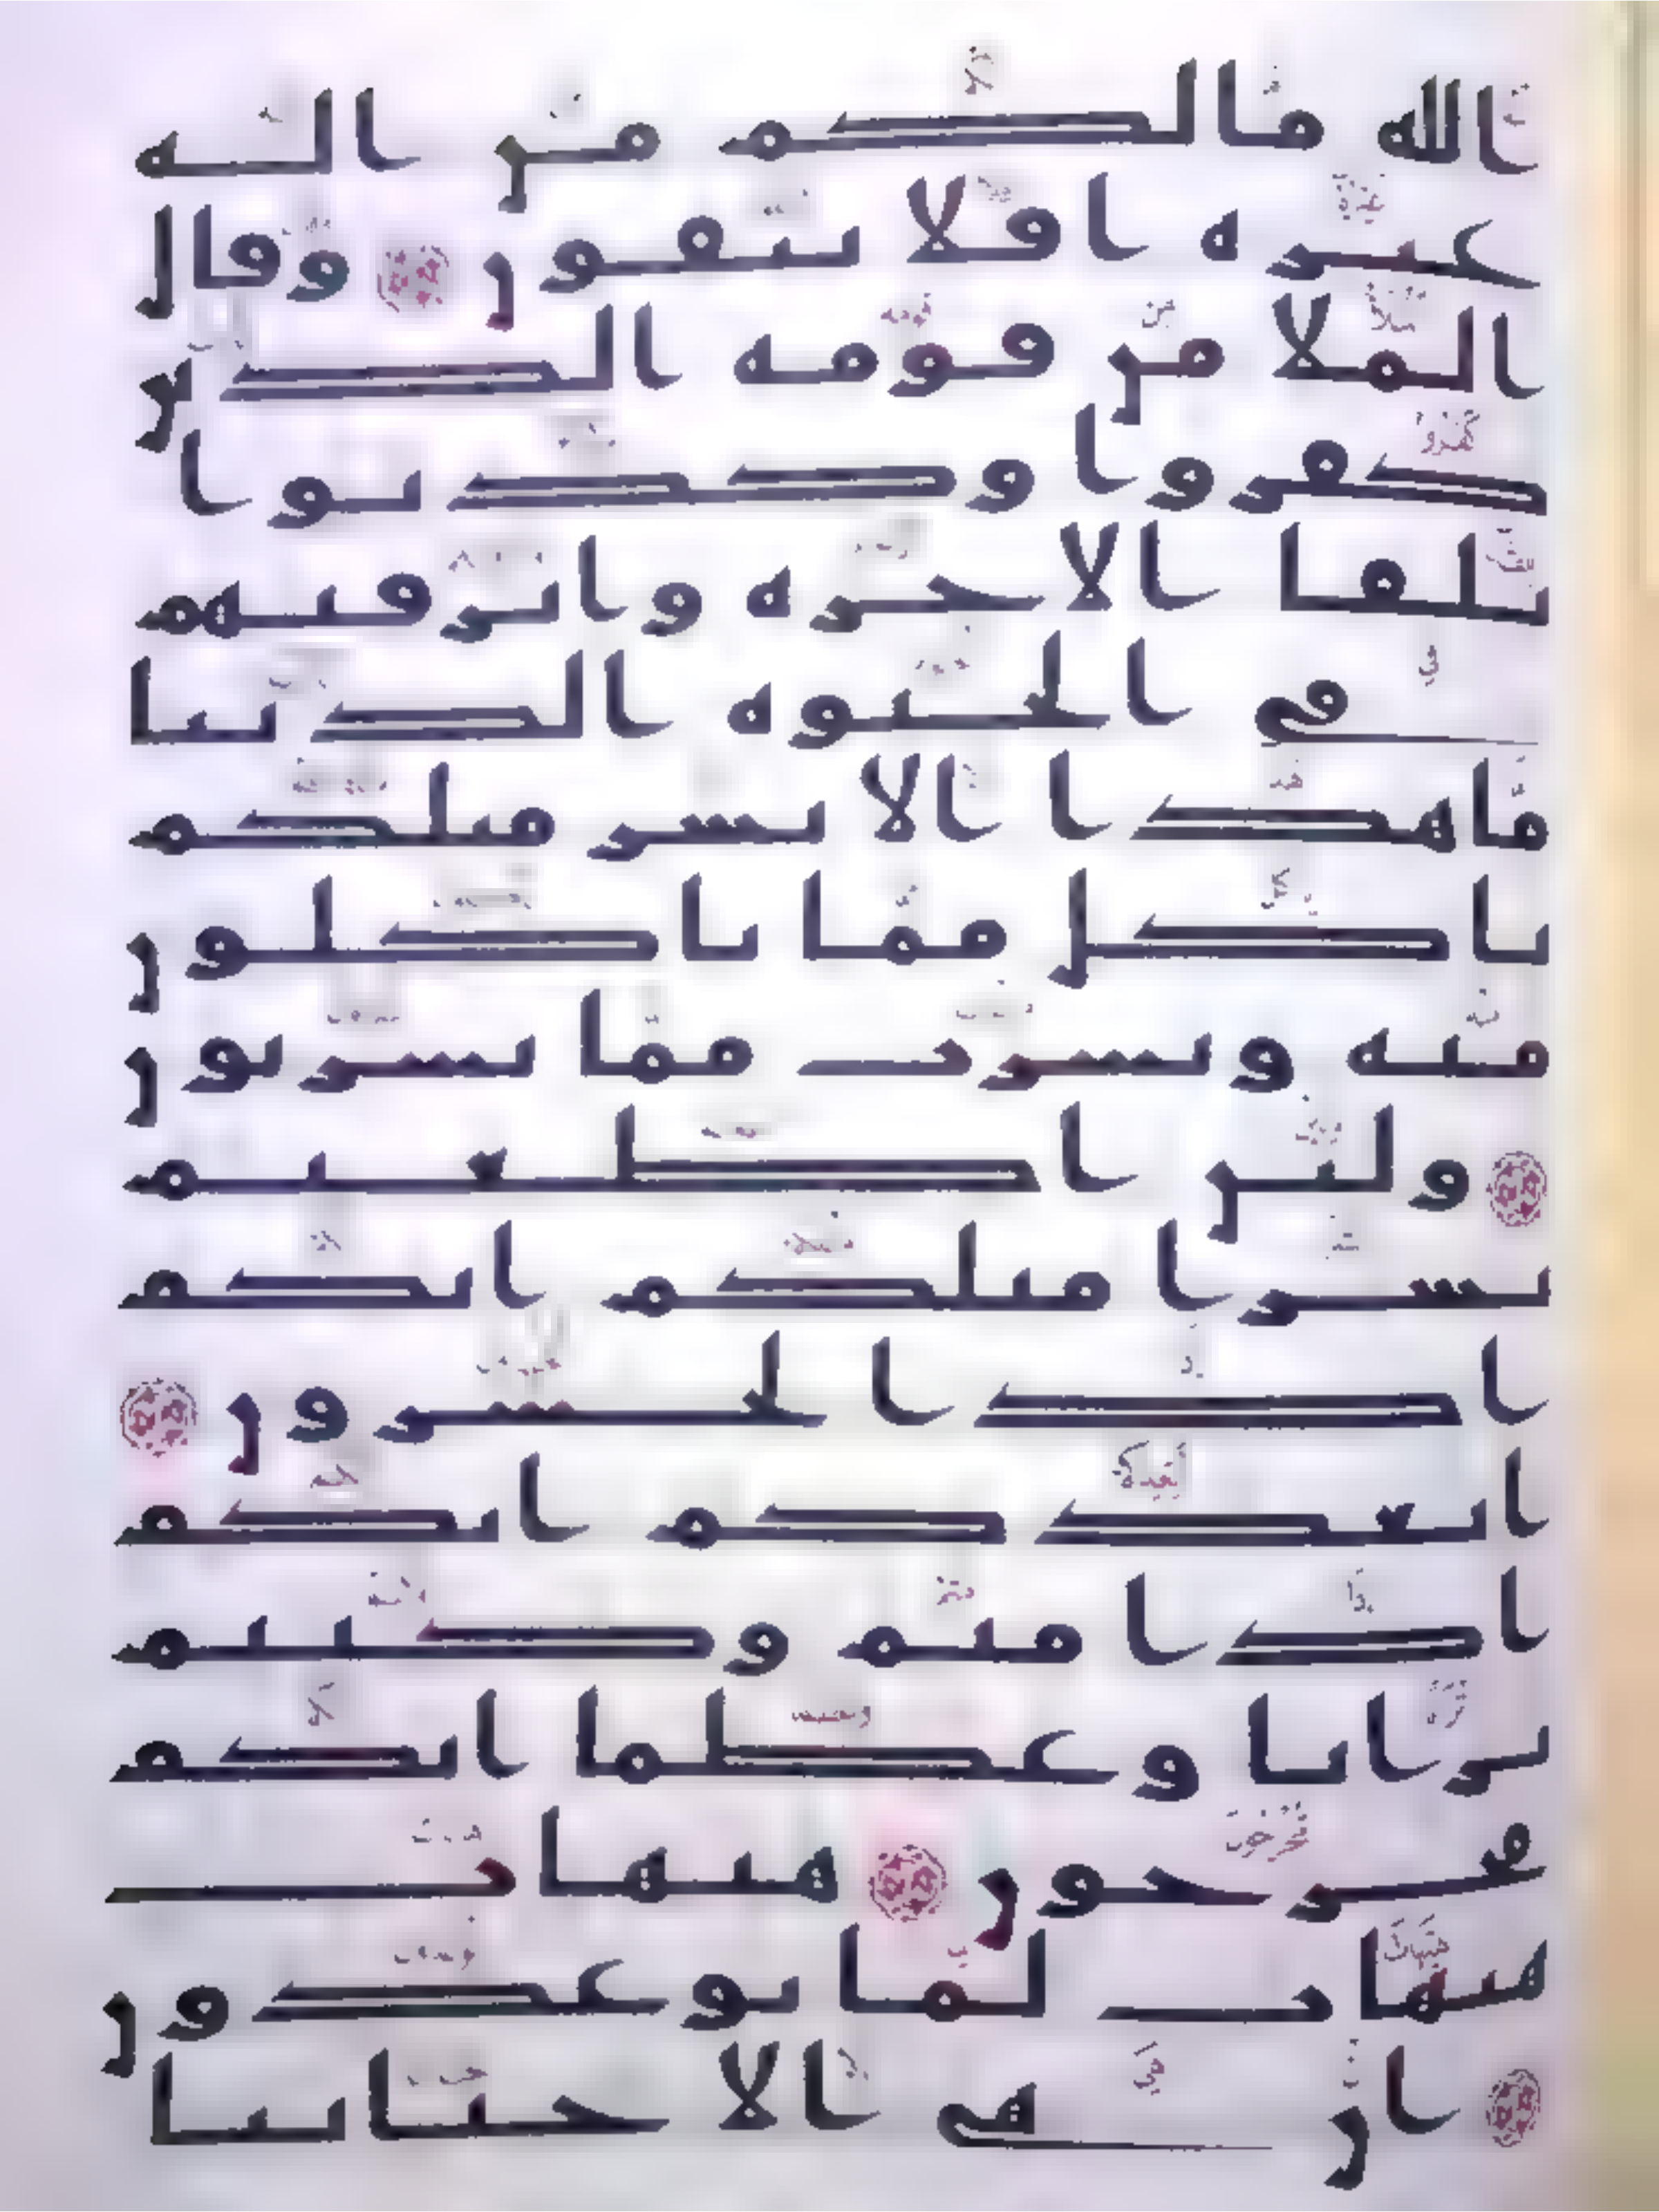 الله مالكم من اله
غيره افلا تتقون وقال
الملا من قومه الذين
كفروا وكذبوا
بلقا الاخره واترفنهم
في الحيوه الدنيا
ما هذا الا بشر مثلكم
ياكل مما تاكلون
منه ويشرب مما تشربون
ولين اطعتم
بشرا مثلكم انكم
اذا لخسرون
ايعدكم انكم
اذا متم وكنتم
ترابا وعظما انكم
مخرجون هيهات
هيهات لما توعدون
ان هي الا حياتنا